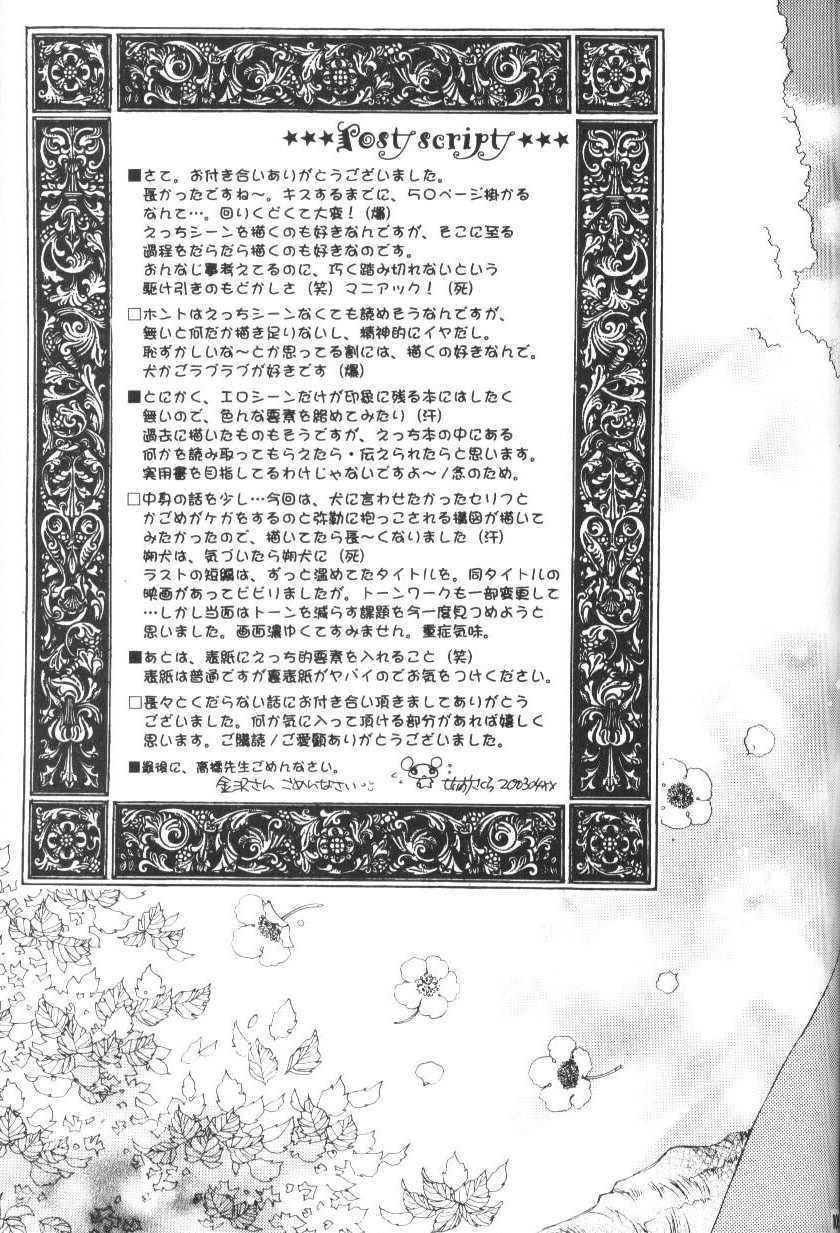 ★★★Post script★★★
■さて。お付き合いありがとうございました。
長かったですね～。キスするまでに、50ページ掛かる
なんて…。回りくどくて大変！（爆）
えっちシーンを描くのも好きなんですが、そこに至る
過程をだらだら描くのも好きなのです。
おんなじ事考えてるのに、巧く踏み切れないという
駆け引きのもどかしさ（笑）マニアック！（死）
□ホントはえっちシーンなくても読めそうなんですが、
無いと何だか描き足りないし、精神的にイヤだし。
恥ずかしいな～とか思ってる割には、描くの好きなんで。
犬かごラブラブが好きです（爆）
■とにかく、エロシーンだけが印象に残る本にはしたく
無いので、色んな要素を絡めてみたり（汗）
過去に描いたものもそうですが、えっち本の中にある
何かを読み取ってもらえたら・伝えられたらと思います。
実用書を目指してるわけじゃないですよ～/念のため。
□中身の話を少し…今回は、犬に言わせたかったセリフと
かごめがケガをするのと弥勒に抱っこされる構図が描いて
みたかったので、描いてたら長～くなりました（汗）
朔犬は、気づいたら朔犬に（死）
ラストの短編は、ずっと温めてたタイトルを。同タイトルの
映画があってビビりましたが。トーンワークも一部変更して
…しかし当面はトーンを減らす課題を今一度見つめようと
思いました。画面濃ゆくてすみません。重症気味。
■あとは、表紙にえっち的要素を入れること（笑）
表紙は普通ですが裏表紙がヤバイのでお気をつけください。
□長々とくだらない話にお付き合い頂きましてありがとう
ございました。何か気に入って頂ける部分があれば嬉しく
思います。ご購読/ご愛顧ありがとうございました。
■最後に、高橋先生ごめんなさい。
金沢さん ごめんなさい